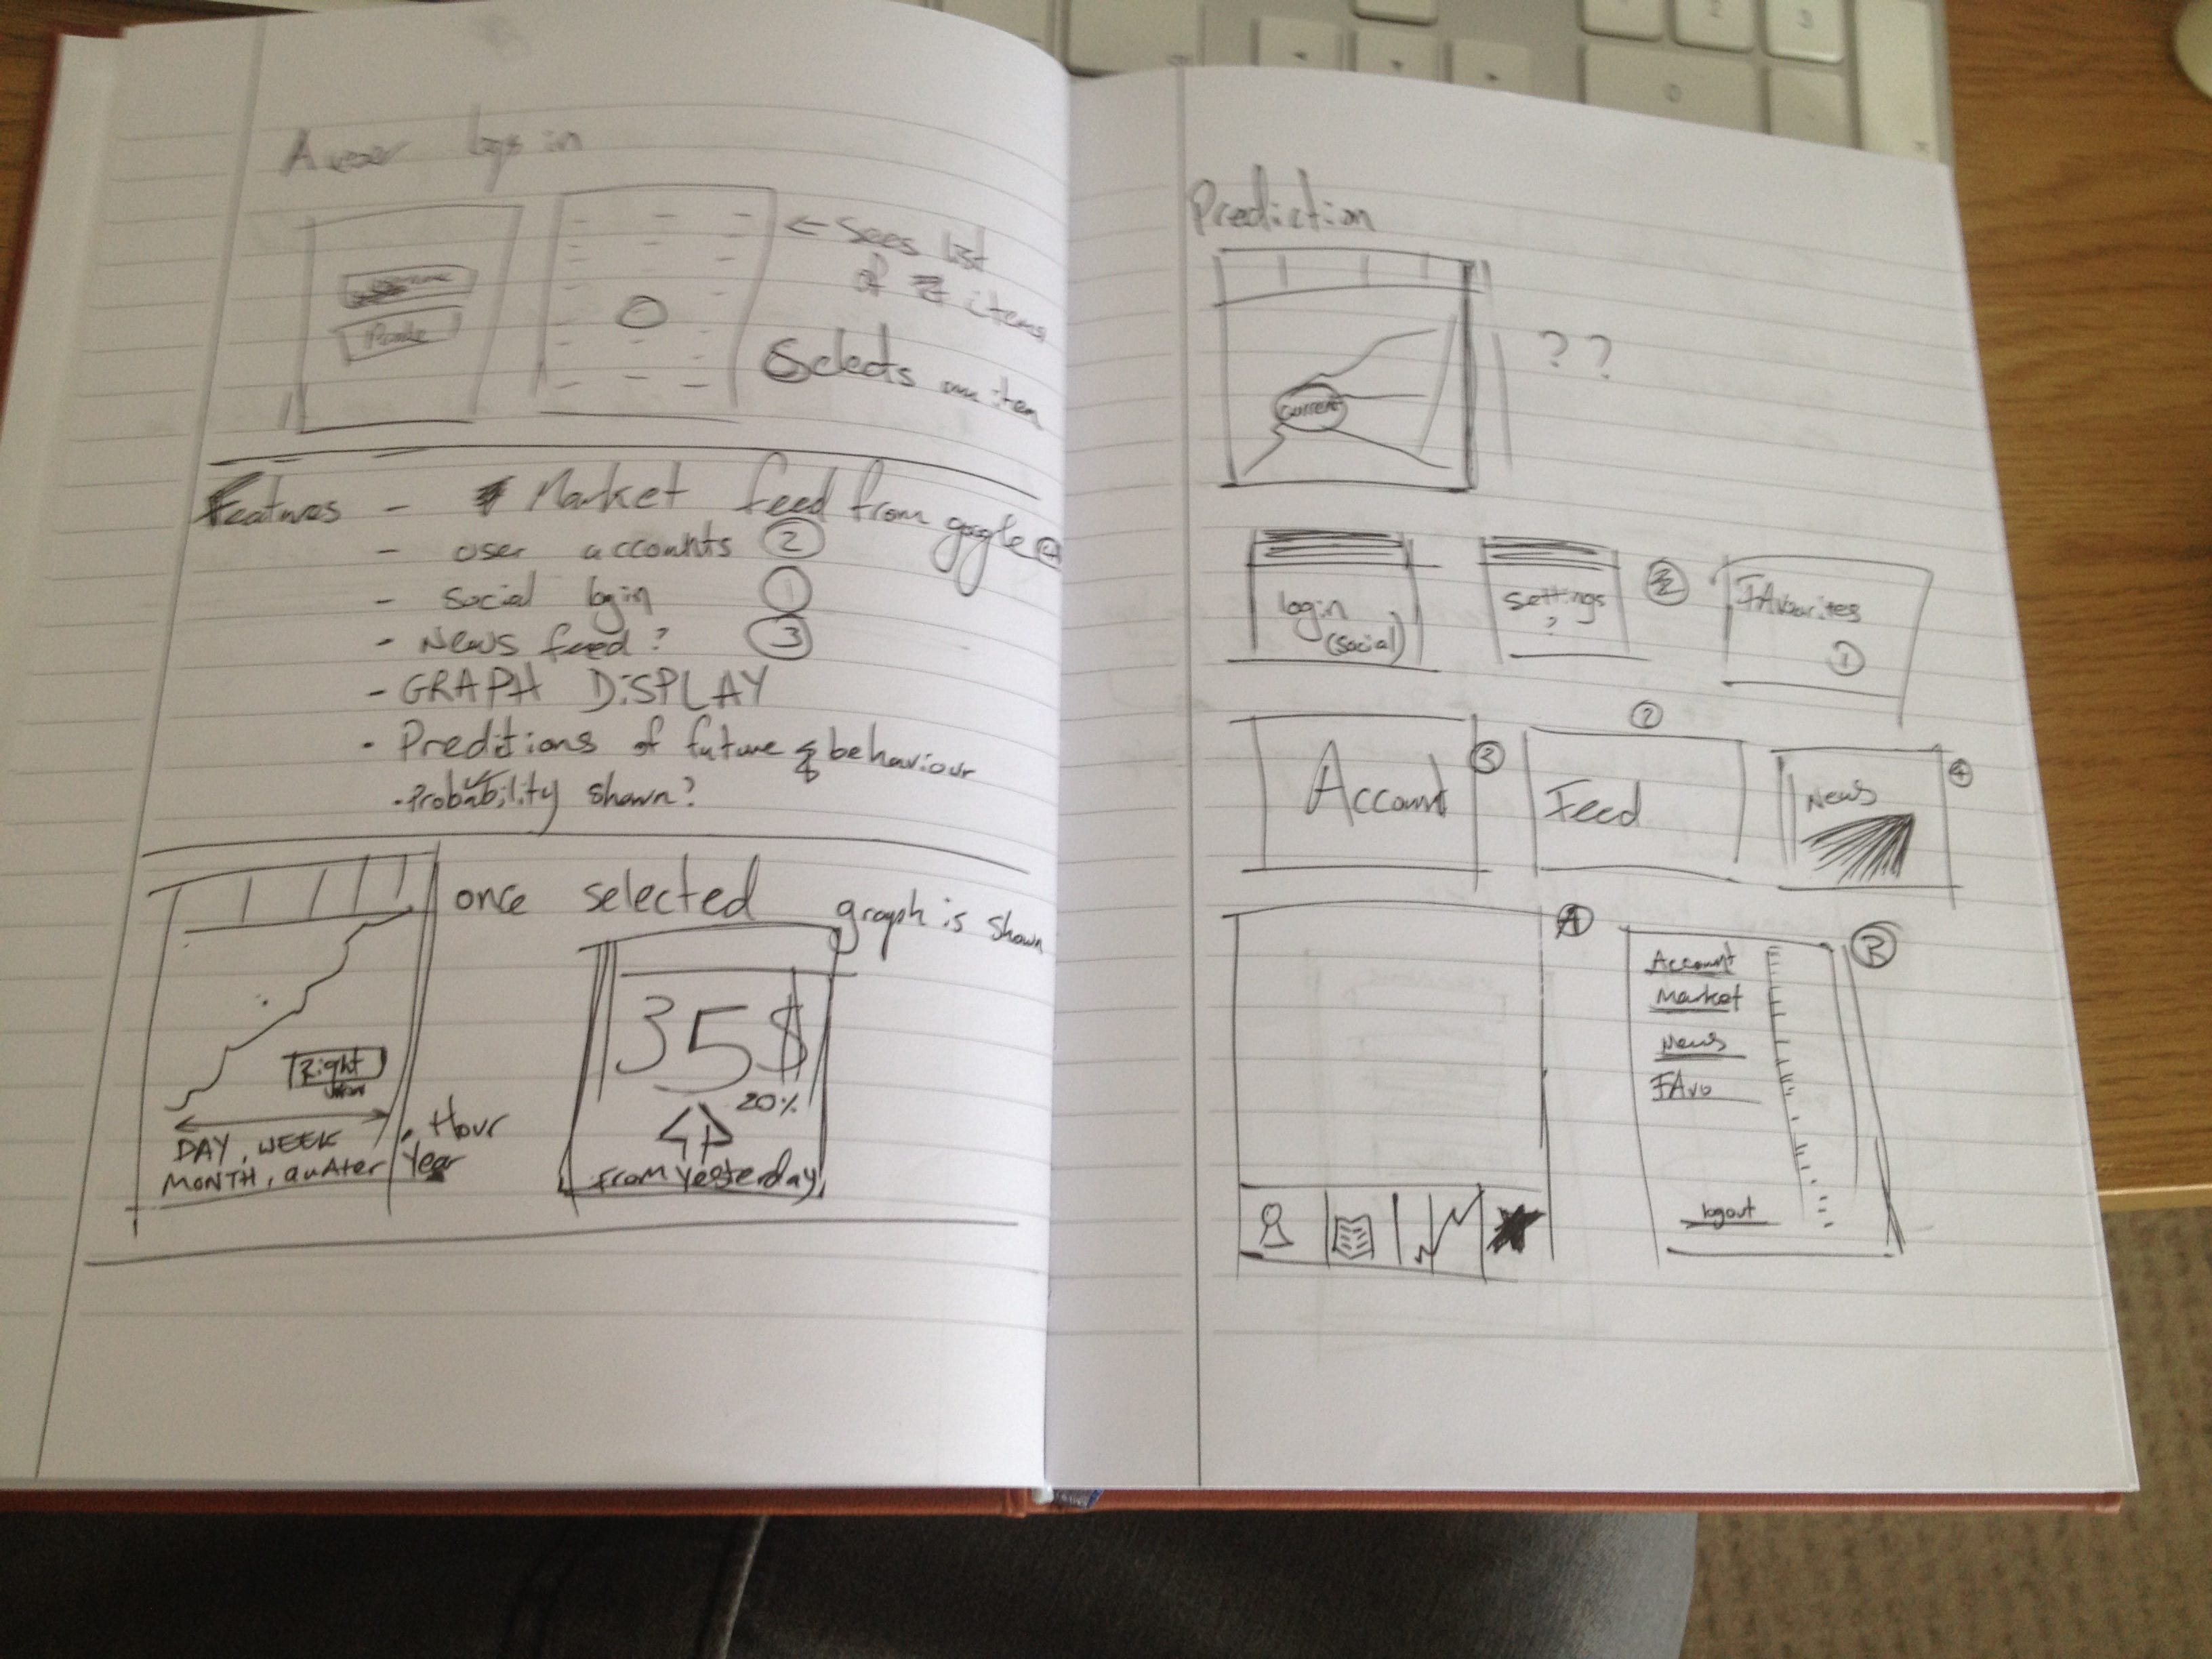 A user logs in
← Sees list
of items
Selects an item
Features - Market feed from google 4
- user accounts 2
- social login 1
- News feed? 3
- GRAPH DiSPLAY
- Preditions of future & behaviour
- Probability shown?
once selected graph is shown
Right
DAY, WEEK
MONTH, quAter
. Hour
Year
35$
20%
From yesterday
Prediction
current
? ?
login
(social)
settings
?
FAvourites
1
Account
3
2
Feed
News
4
A
B
Account
Market
News
FAvo
logout
1
2
3
0